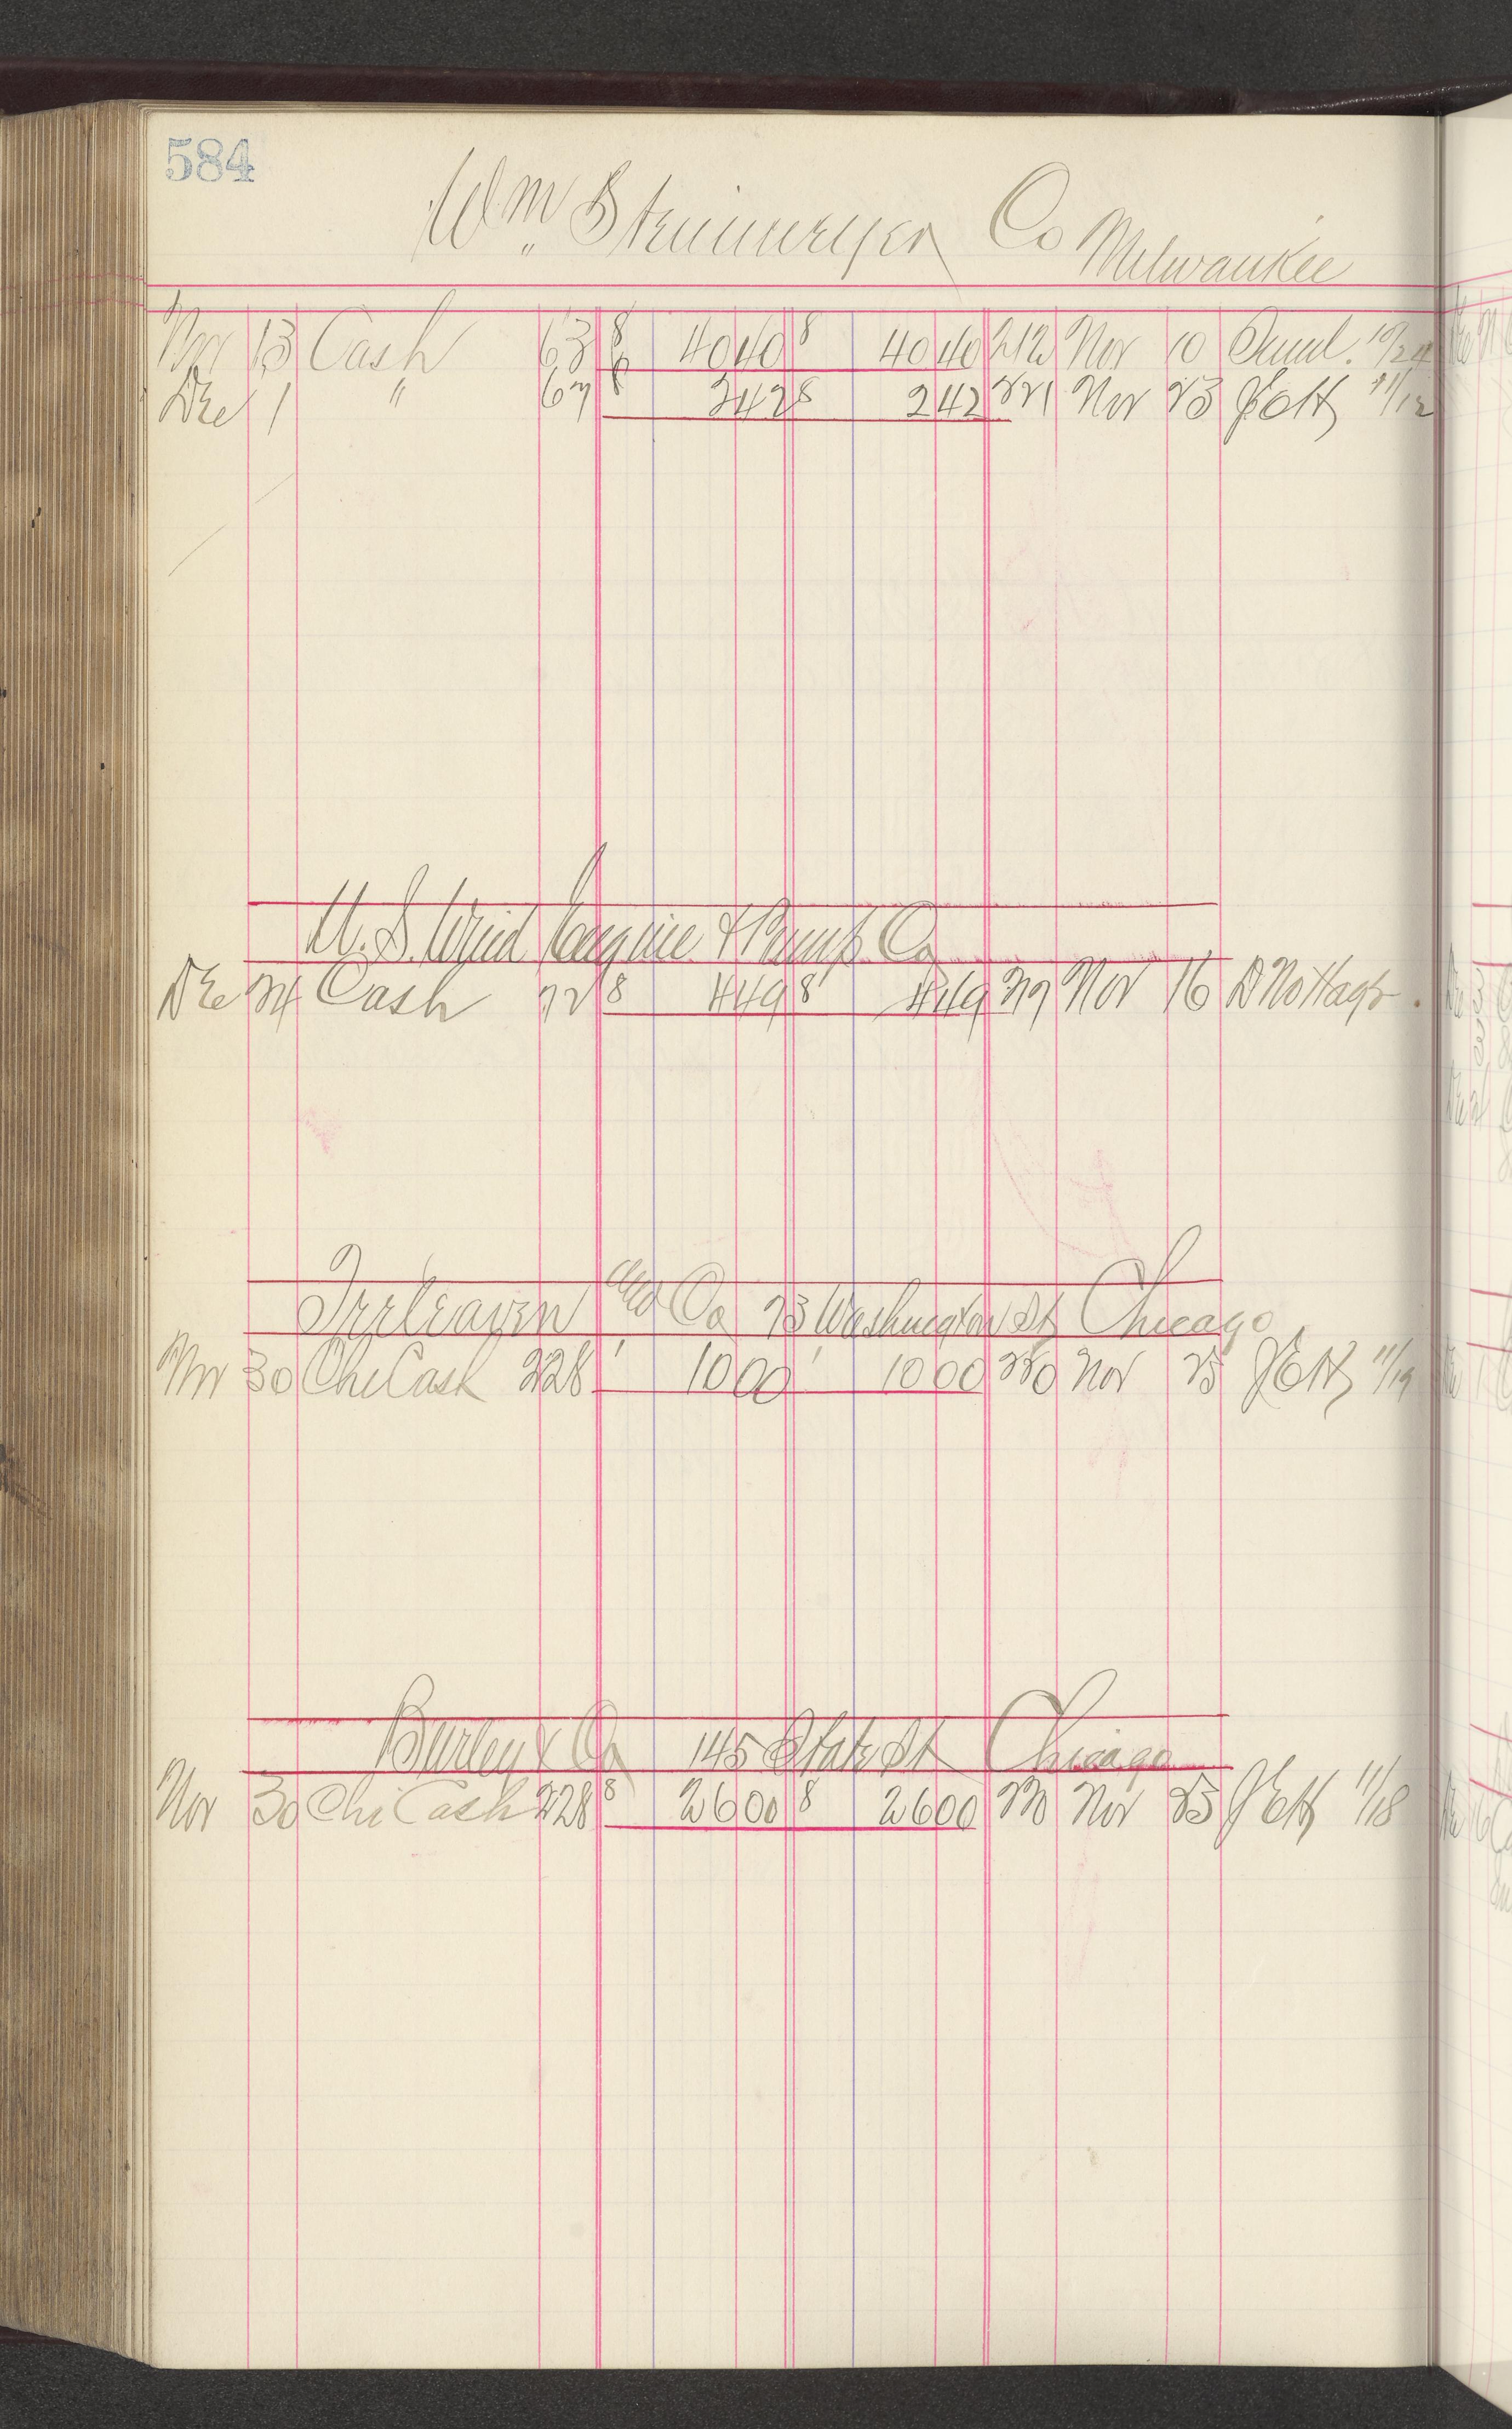 584
Wm Steinmeyer Co Milwaukee
Nov 13 Cash 63 8 4040 8 4040 212 Nov 10 10/29
Dec 1 " 67 8 242 8 242 221 Nov 23 11/12
U. S. Wind Engine & Pump Co
Dec 24 Cash 72 8 449 8 449 219 Nov 16
Treleaven Co 73 Washington St Chicago
Nov 30 Chi Cash 228 1 1000 1 1000 220 Nov 23 11/19
Burley & Co 145 State St Chicago
Nov 30 Chi Cash 228 8 2600 8 2600 220 Nov 23 11/18